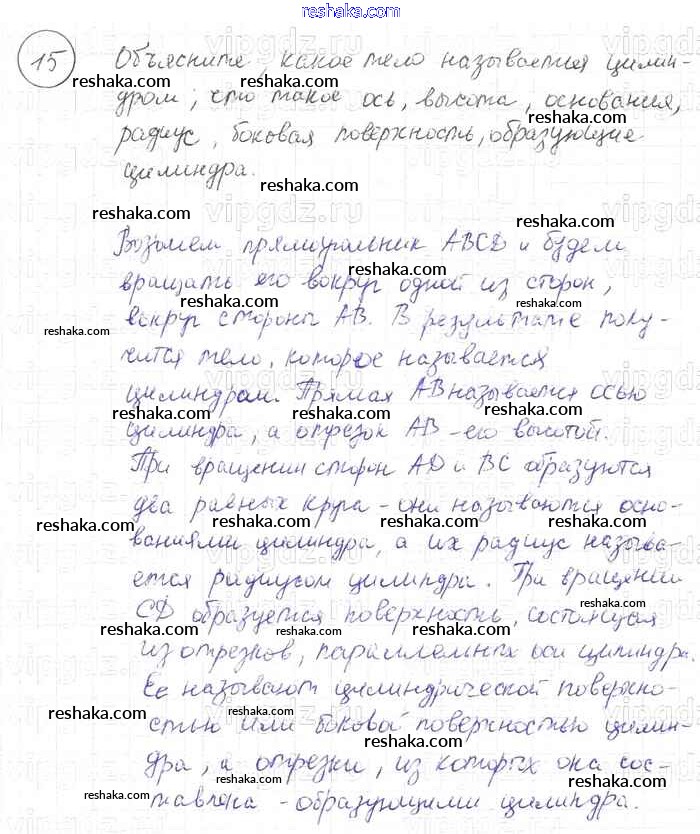 reshaka.com
15 Объясните, какое тело называется цилин-
дром, что такое ось, высота, основания,
радиус, боковая поверхность, образующие
цилиндра.
Возьмем прямоугольник ABCD и будем
вращать его вокруг одной из сторон,
вокруг стороны AB. В результате полу-
чится тело, которое называется
цилиндром. Прямая AB называется осью
цилиндра, а отрезок AB - его высотой.
При вращении сторон AD и BC образуются
два равных круга - они называются осно-
ваниями цилиндра, а их радиус называ-
ется радиусом цилиндра. При вращении
CD образуется поверхность, состоящая
из отрезков, параллельных оси цилиндра.
Ее называют цилиндрической поверхно-
стью или боковой поверхностью цилин-
дра, а отрезки, из которых она сос-
тавлена - образующими цилиндра.